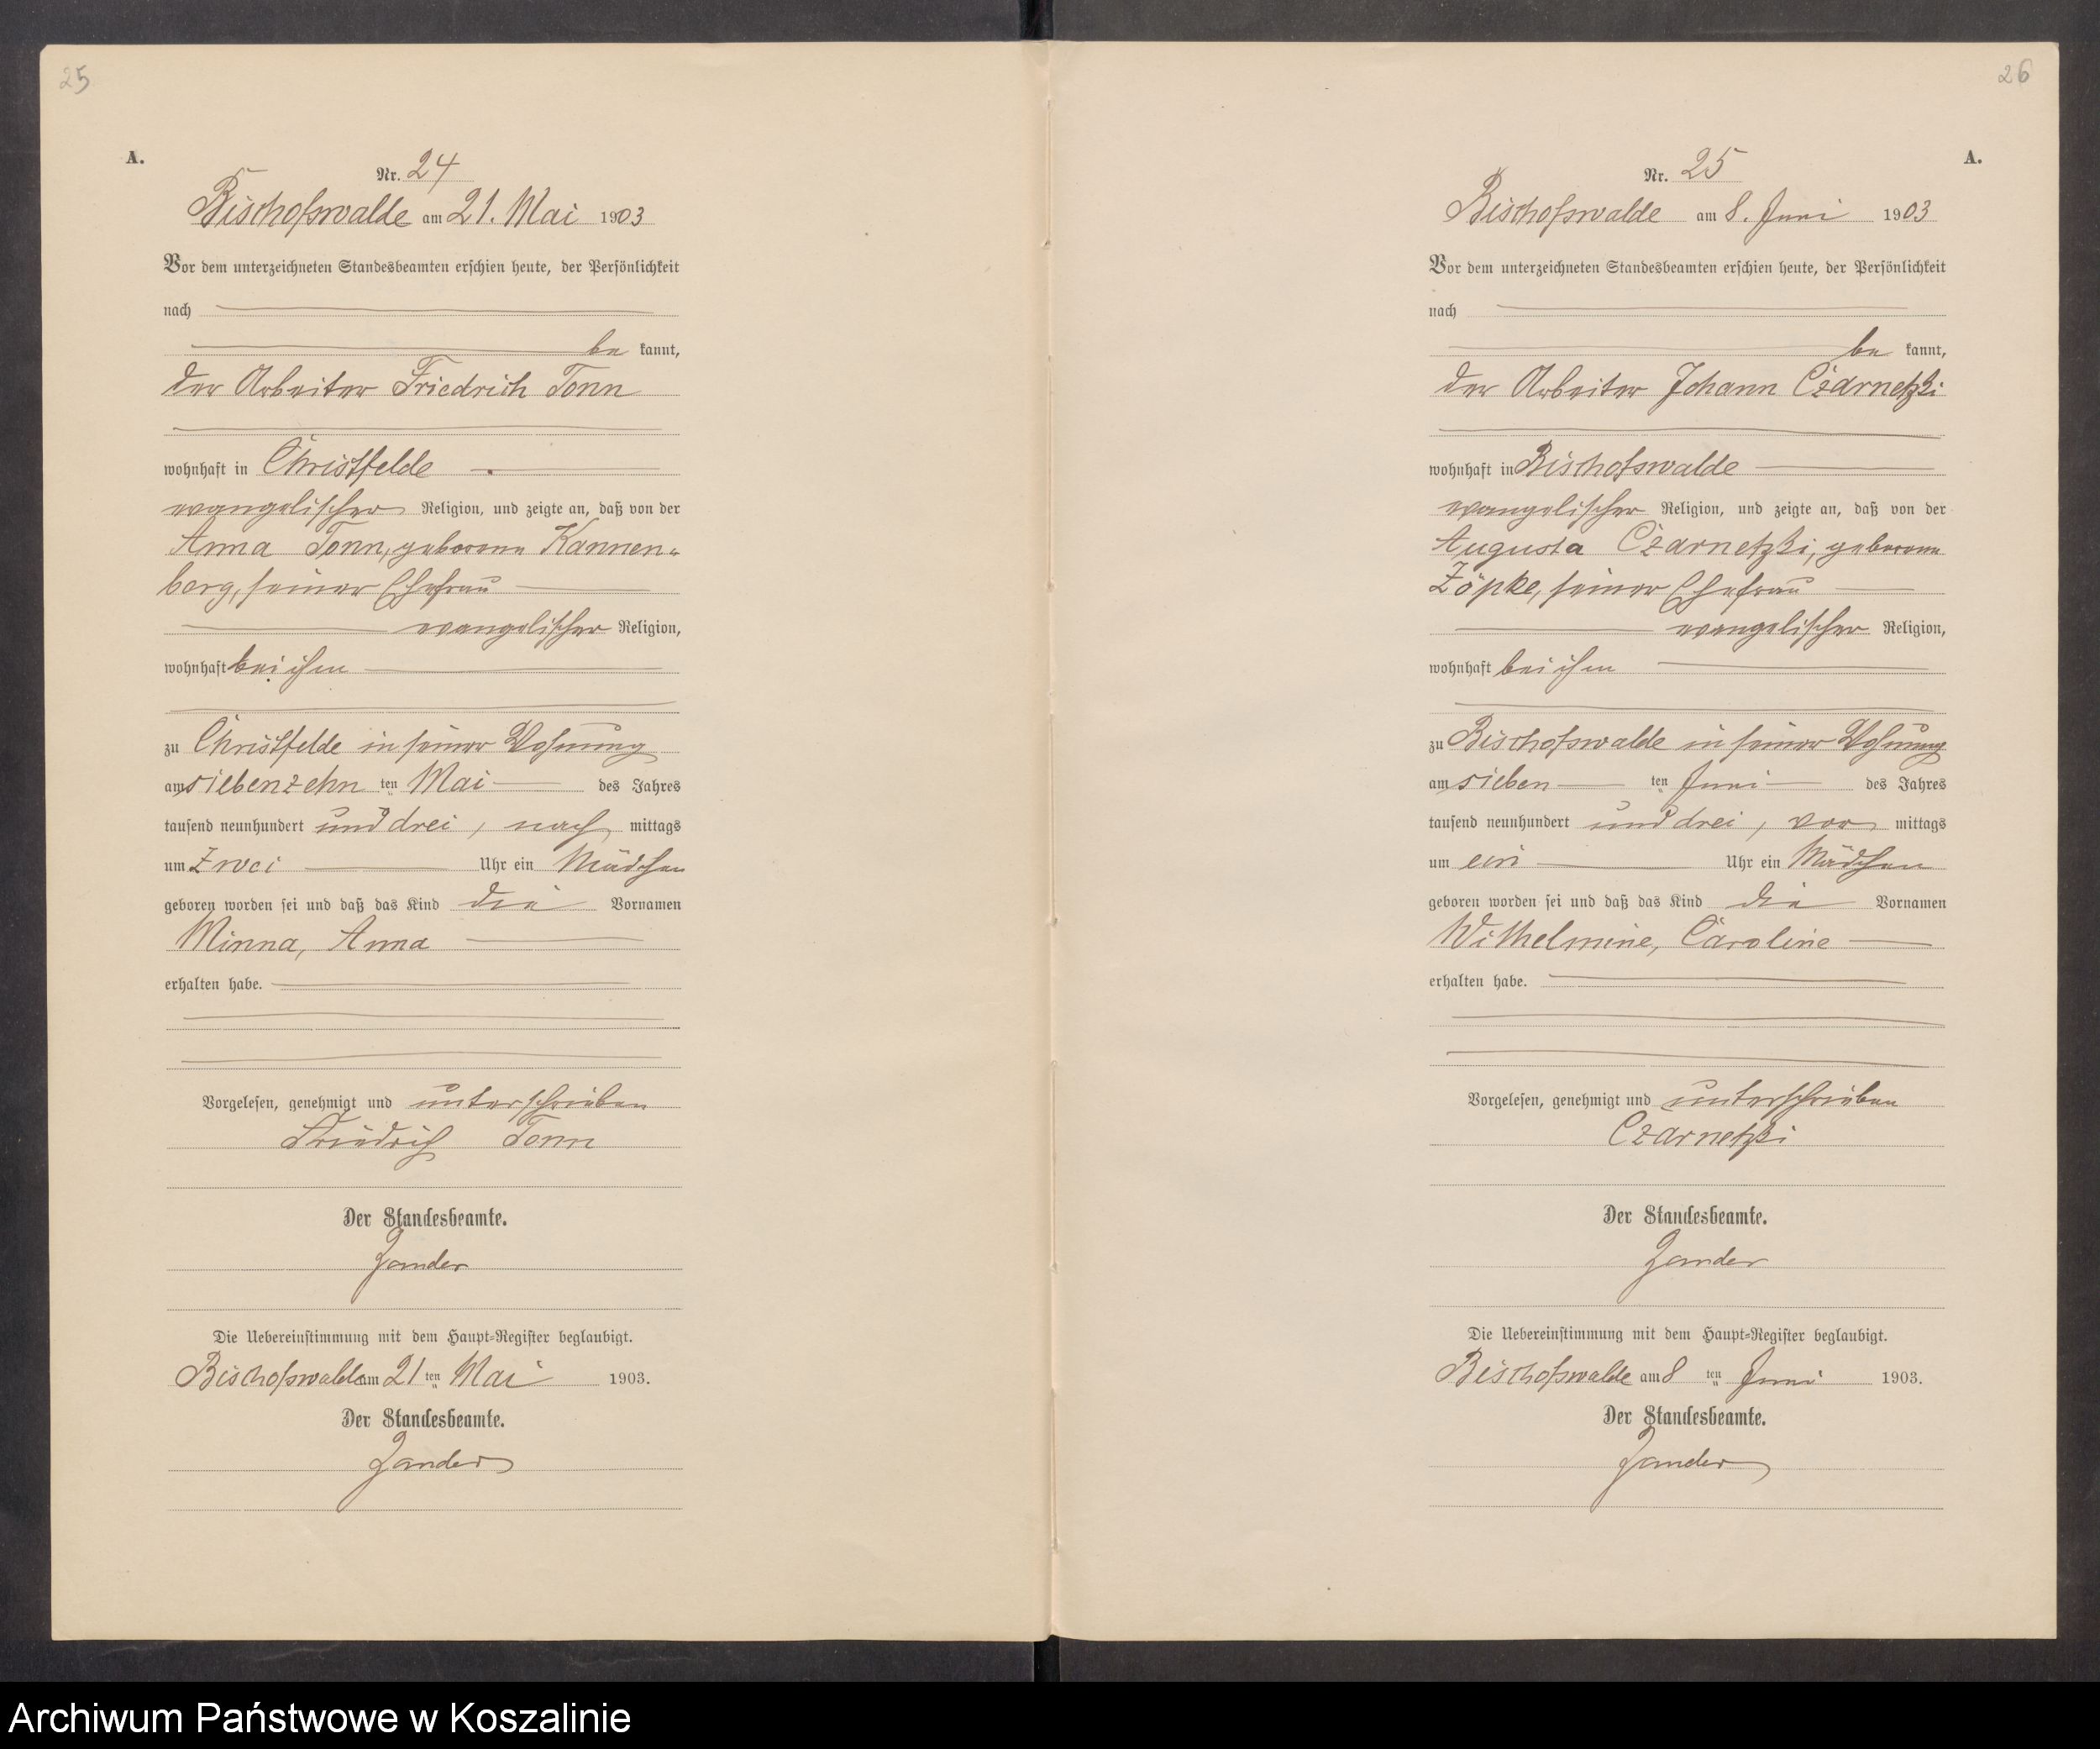 25
A.
Nr. 24
Bischofswalde am 21. Mai 1903
Vor dem unterzeichneten Standesbeamten erschien heute, der Persönlichkeit
nach
be kannt,
der Arbeiter Friedrich Tonn
wohnhaft in Christfelde
evangelischer Religion, und zeigte an, daß von der
Anna Tonn, geborene Kannen-
berg, seiner Ehefrau
evangelischer Religion,
wohnhaft bei ihm
zu Christfelde in seiner Wohnung
am siebenzehn ten Mai des Jahres
tausend neunhundert und drei, nach mittags
um zwei Uhr ein Mädchen
geboren worden sei und daß das Kind die Vornamen
Minna, Anna
erhalten habe.
Vorgelesen, genehmigt und unterschrieben
Friedrich Tonn
Der Standesbeamte.
Zander
Die Uebereinstimmung mit dem Haupt-Register beglaubigt.
Bischofswalde am 21 ten Mai 1903.
Der Standesbeamte.
Zander
26
A.
Nr. 25
Bischofswalde am 8. Juni 1903
Vor dem unterzeichneten Standesbeamten erschien heute, der Persönlichkeit
nach
be kannt,
der Arbeiter Johann Czarnetzki
wohnhaft in Bischofswalde
evangelischer Religion, und zeigte an, daß von der
Augusta Czarnetzki, geborene
Zöpke, seiner Ehefrau
evangelischer Religion,
wohnhaft bei ihm
zu Bischofswalde in seiner Wohnung
am sieben ten Juni des Jahres
tausend neunhundert und drei, vor mittags
um ein Uhr ein Mädchen
geboren worden sei und daß das Kind die Vornamen
Wilhelmine, Caroline
erhalten habe.
Vorgelesen, genehmigt und unterschrieben
Czarnetzki
Der Standesbeamte.
Zander
Die Uebereinstimmung mit dem Haupt-Register beglaubigt.
Bischofswalde am 8 ten Juni 1903.
Der Standesbeamte.
Zander
Archiwum Państwowe w Koszalinie